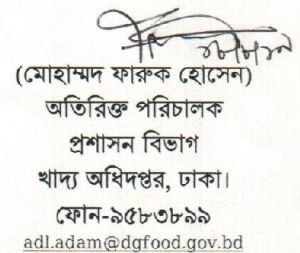 (মোহাম্মদ ফারুক হোসেন)
অতিরিক্ত পরিচালক
প্রশাসন বিভাগ
খাদ্য অধিদপ্তর, ঢাকা।
ফোন-৯৫৮৩৮৯৯
adl.adam@dgfood.gov.bd